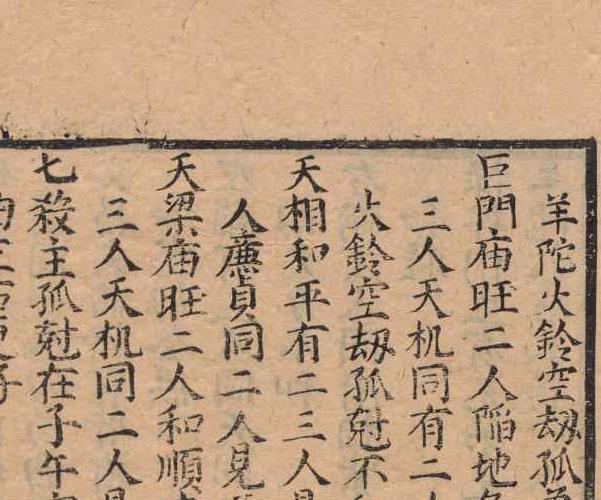 羊陀火鈴空刼孤
巨門庙旺二人陥地
三人天机同有二
火鈴空刼孤尅不
天相和平有二三人
人亷貞同二人見
天梁庙旺二人和順
三人天机同二人
七殺主孤尅在子午